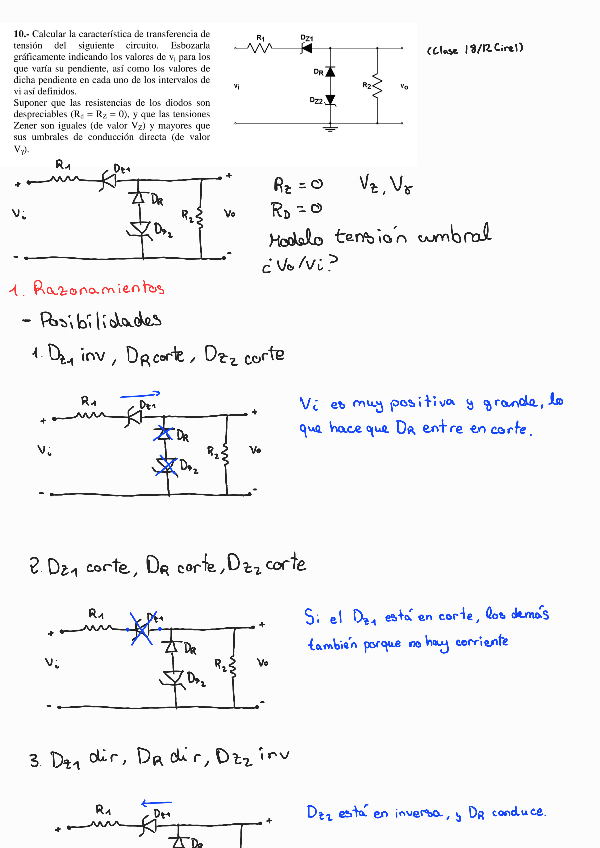 10.- Calcular la característica de transferencia de
tensión del siguiente circuito. Esbozarla
gráficamente indicando los valores de vi para los
que varía su pendiente, así como los valores de
dicha pendiente en cada uno de los intervalos de
vi así definidos.
Suponer que las resistencias de los diodos son
despreciables (RD = RZ = 0), y que las tensiones
Zener son iguales (de valor VZ) y mayores que
sus umbrales de conducción directa (de valor
Vγ).
R1 DZ1
DR
DZ2
R2
vi vo
(Clase 18/12 Cire1)
R1 Dz1
DR
Dz2
R2
Vi Vo
+ +
- -
Rz = 0 Vz, Vγ
RD = 0
Modelo tensión umbral
¿Vo/Vi?
1. Razonamientos
- Posibilidades
1. Dz1 inv, DR corte, Dz2 corte
R1 Dz1
DR
Dz2
R2
Vi Vo
+ +
- -
Vi es muy positiva y grande, lo
que hace que DR entre en corte.
2. Dz1 corte, DR corte, Dz2 corte
R1 Dz1
DR
Dz2
R2
Vi Vo
+ +
- -
Si el Dz1 está en corte, los demás
también porque no hay corriente
3. Dz1 dir, DR dir, Dz2 inv
R1 Dz1
DR
+ +
Dz2 está en inversa, y DR conduce.